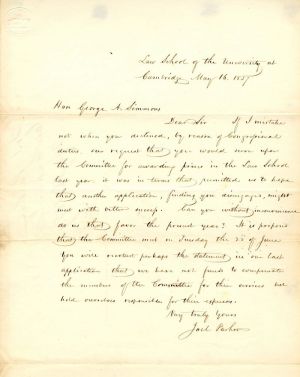 Law School of the University at
Cambridge May 16. 1857
Hon George A. Simmons
Dear Sir If I mistake
not when you declined, by reason of Congressional
duties our request that you would serve upon
the Committee for awarding prizes in the Law School
last year it was in terms that permitted us to hope
that another application, finding you disengaged, might
meet with better success. Can you without inconvenience
do us that favor the present year? It is proposed
that the Committee meet on Tuesday the 23 of June
You will recollect perhaps the statement in our last
application that we have not funds to compensate
the members of the Committee for their services but
hold ourselves responsible for their expenses.
Very truly Yours
Joel Parker